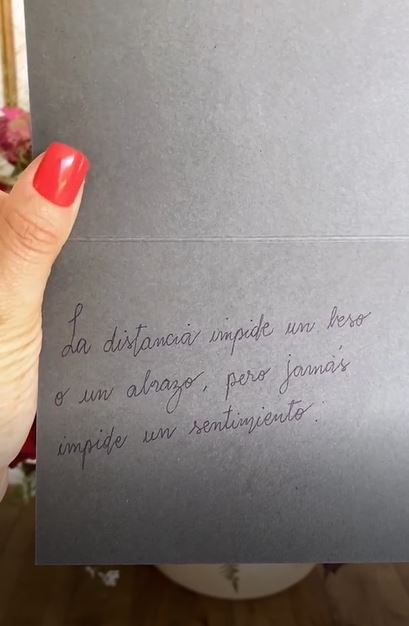 La distancia impide un beso
o un abrazo, pero jamás
impide un sentimiento.